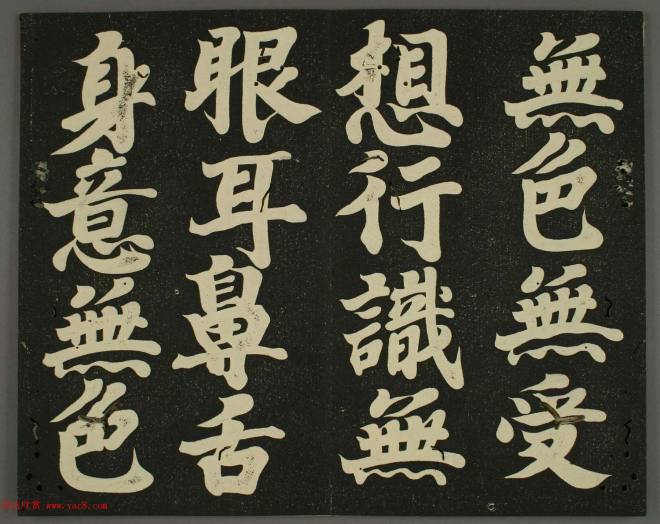 無色無受
想行識無
眼耳鼻舌
身意無色
www.yac8.com